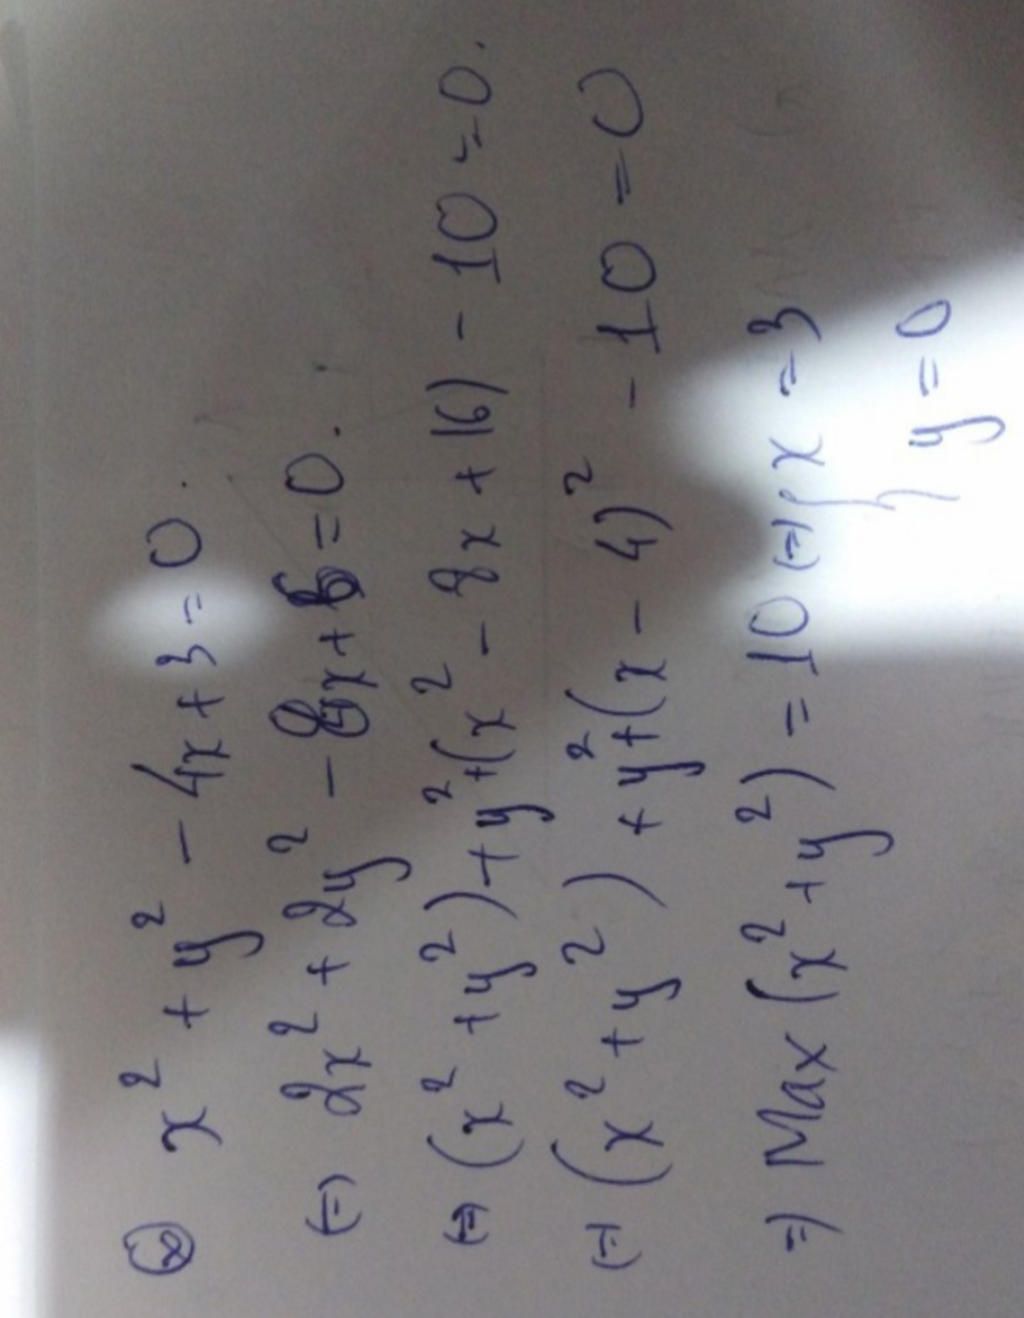 ⊗ x² + y² - 4x + 3 = 0.
(=) 2x² + 2y² - 8x + 6 = 0.
(=) (x² + y²) + y² + (x² - 8x + 16) - 10 = 0.
(=) (x² + y²) + y² + (x - 4)² - 10 = 0
=) Max (x² + y²) = 10 (=) { x = 3
y = 0